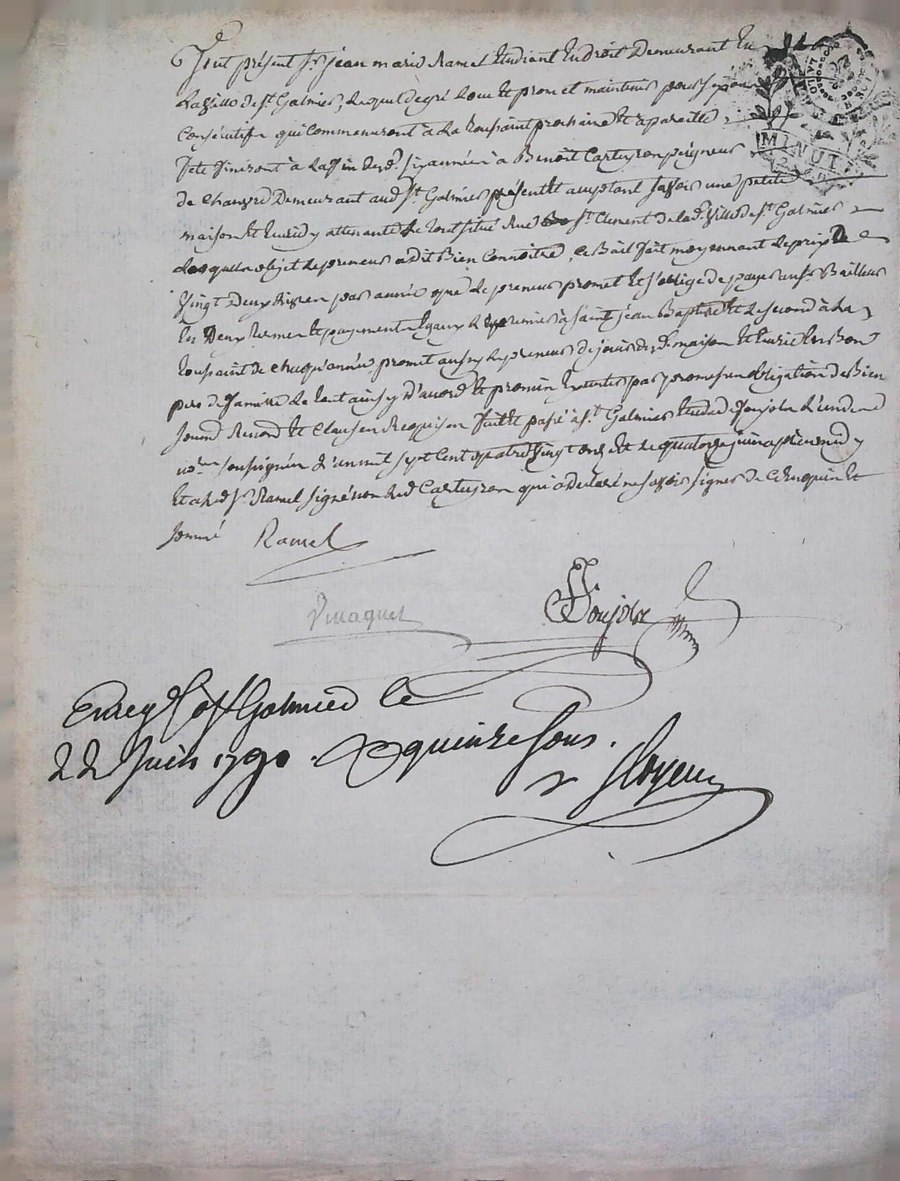 fut présent sr jean marie Ramel Etudiant En droit Demeurant En
La ville de st Galmier, Lequel de gré Loue Et promet maintenir pour six
Consécutifs qui Commenceront à La toussaint prochaine Et à pareille
fete finiront à La fin desd. six années à Benoit Carteyron peigneur
de Chanvre Demeurant aud. st Galmier présent Et acceptant savoir une petite
maison Et Ecurie y attenante Le tout situé Rue st Clement de lad. ville de st Galmier
desquels objet Le preneur a dit Bien Connoitre, Ce Bail fait moyennant Le prix de
vingt deux livres par année que Le preneur promet Et s'oblige de payer aud. sr Bailleur
En deux termes Et payements Egaux Le premier à saint jean Baptiste Et Le second à La
toussaint de Chaque année promet aussy Le preneur de jouir desd. maison Et Ecurie En Bon
pere de famille Le tout ainsy d'accord Et promis Executer par promesse obligation de Bien
soumd Renond Et Clauses Requises fait Et passé à st Galmier Etude de foujols L'un des
nores soussignés L'an mil sept Cent quatre vingt dix Et Le quatorze juin après midy
Et a led. sr Ramel signé non led. Carteyron qui a déclaré ne savoir signer de Ce Enquis Et
sommé Ramel
foujols
Enregté à st Galmier le
22 juin 1790. R quinze sous.
MINUT